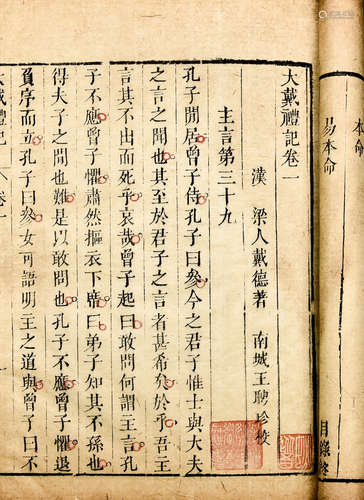 本命
易本命
目錄終
大戴禮記卷一
漢 梁人戴德著 南城王聘珍校
主言第三十九
孔子閒居曾子侍孔子曰參今之君子惟士與大夫
之言之聞也其至於君子之言者甚希矣於乎吾主
言其不出而死乎哀哉曾子起曰敢問何謂主言孔
子不應曾子懼肅然摳衣下席曰弟子知其不孫也
得夫子之閒也難是以敢問也孔子不應曾子懼退
負序而立孔子曰參女可語明主之道與曾子曰不
大戴禮記 卷一